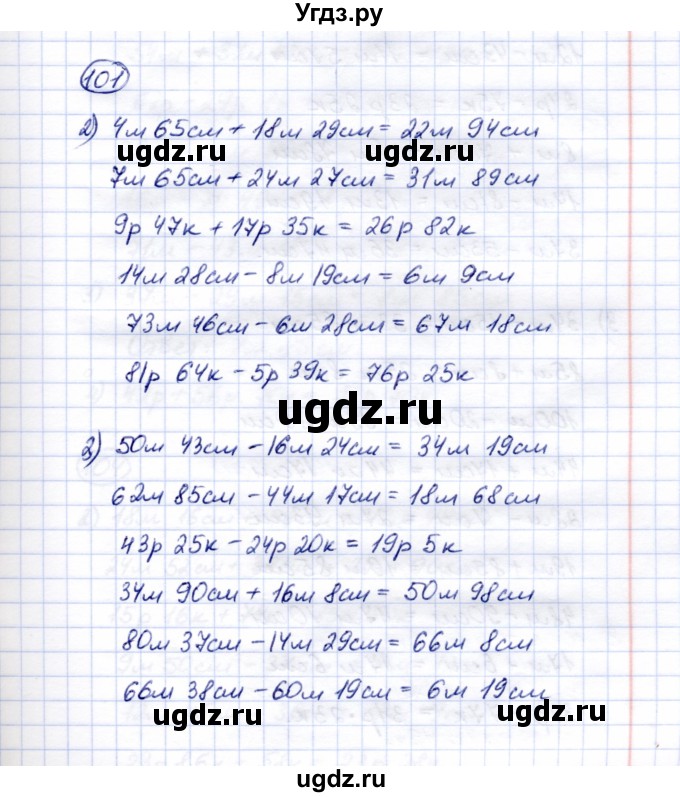 Угдз.ру
101
2) 4м 65см + 18м 29см = 22м 94см
ugdz.ru ugdz.ru
7м 65см + 24м 27см = 31м 89см
9р 47к + 17р 35к = 26р 82к
14м 28см - 8м 19см = 6м 9см
73м 46см - 6м 28см = 67м 18см
81р 64к - 5р 39к = 76р 25к
ugdz.ru
2) 50м 43см - 16м 24см = 34м 19см
62м 85см - 44м 17см = 18м 68см
43р 25к - 24р 20к = 19р 5к
34м 90см + 16м 8см = 50м 98см
80м 37см - 14м 29см = 66м 8см
66м 38см - 60м 19см = 6м 19см
ugdz.ru ugdz.ru
ugdz.ru